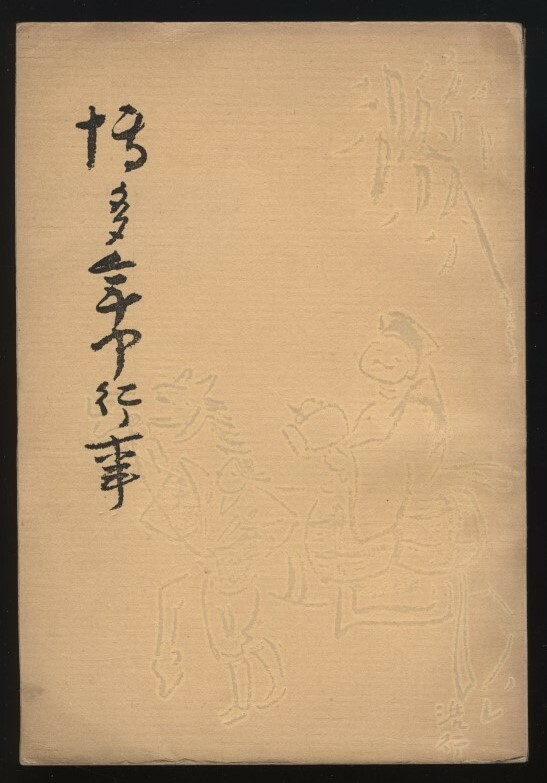 博多年中行事